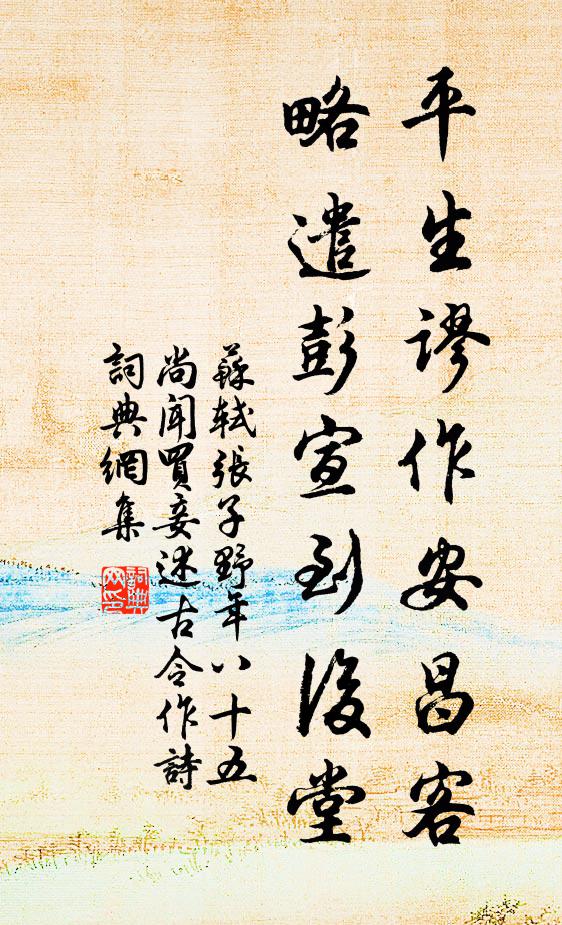 平生謬作安昌客
略遣彭宣到後堂
蘇軾張子野年八十五
尚聞買妾述古令作詩
詞典網集